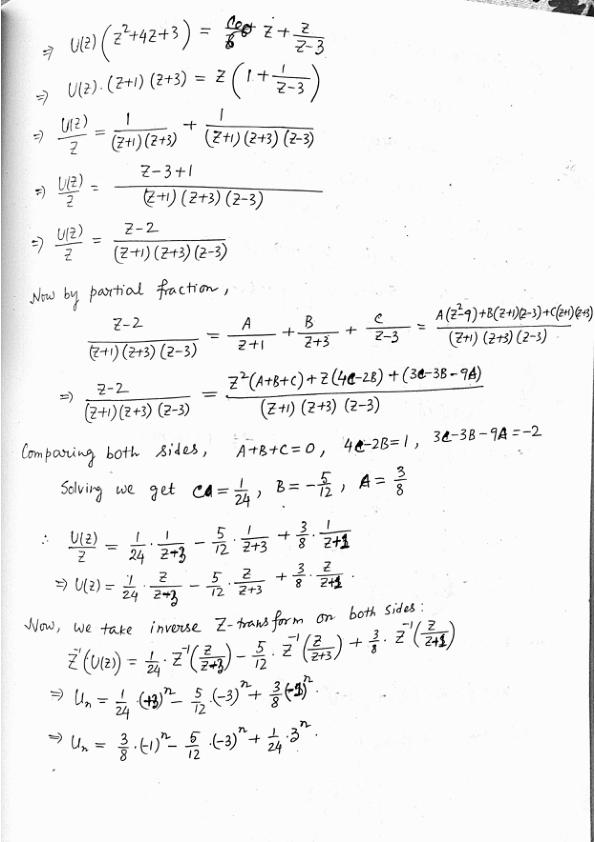 ⇒ U(z) (z²+4z+3) = z + z/(z-3)
⇒ U(z). (z+1) (z+3) = z (1 + 1/(z-3))
⇒ U(z)/z = 1/((z+1)(z+3)) + 1/((z+1)(z+3)(z-3))
⇒ U(z)/z = (z-3+1)/((z+1)(z+3)(z-3))
⇒ U(z)/z = (z-2)/((z+1)(z+3)(z-3))
Now by partial fraction,
(z-2)/((z+1)(z+3)(z-3)) = A/(z+1) + B/(z+3) + C/(z-3) = (A(z²-9)+B(z+1)(z-3)+C(z+1)(z+3))/((z+1)(z+3)(z-3))
⇒ (z-2)/((z+1)(z+3)(z-3)) = (z²(A+B+C)+z(4C-2B)+(3C-3B-9A))/((z+1)(z+3)(z-3))
Comparing both sides, A+B+C=0, 4C-2B=1, 3C-3B-9A=-2
Solving we get C = 1/24, B = -5/12, A = 3/8
∴ U(z)/z = 1/24 · 1/(z-3) - 5/12 · 1/(z+3) + 3/8 · 1/(z+1)
⇒ U(z) = 1/24 · z/(z-3) - 5/12 · z/(z+3) + 3/8 · z/(z+1).
Now, we take inverse Z-transform on both sides:
Z⁻¹(U(z)) = 1/24 · Z⁻¹(z/(z-3)) - 5/12 · Z⁻¹(z/(z+3)) + 3/8 · Z⁻¹(z/(z+1))
⇒ Uₙ = 1/24 · (+3)ⁿ - 5/12 · (-3)ⁿ + 3/8 (-1)ⁿ.
⇒ Uₙ = 3/8 · (-1)ⁿ - 5/12 · (-3)ⁿ + 1/24 · 3ⁿ.